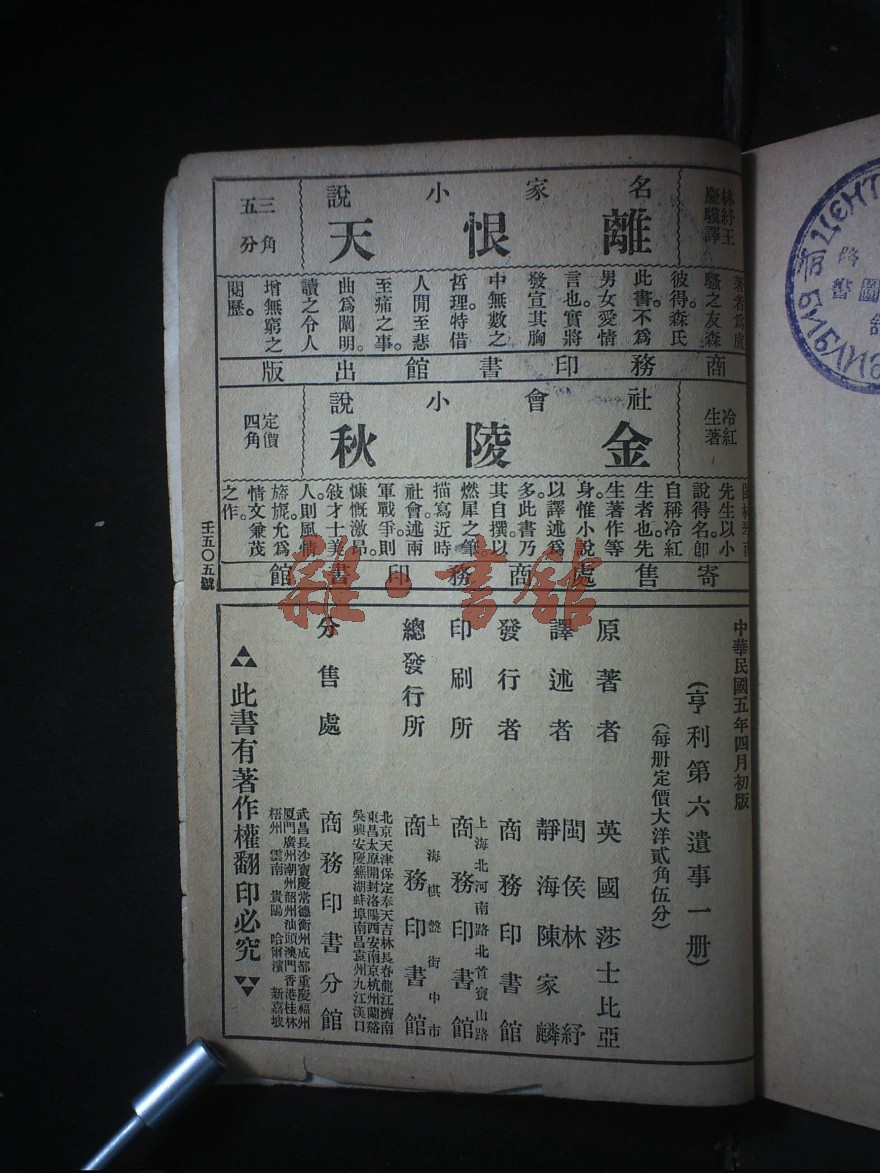 林紓王
慶驥譯
名家小說
離恨天
三角
五分
著者爲盧
騷之友森
彼得森氏
此書。不爲
男女愛情
言也。實將
發宣其胸
中無數之
哲理。特借
人間至悲
至痛之事。
曲爲闡明。
讀之令人
增無窮之
閱歷。
商務印書館出版
冷紅
生著
社會小說
金陵秋
定價
四角
先生以小
說得名。卽
自稱冷紅
生者也。先
生著作等
身。惟小說
以譯述爲
多。此書乃
其自撰。以
燃犀之筆。
描寫近時
社會。述兩
軍戰爭。則
慷慨激昂。
敍才士美
人。則風情
旖旎。允爲
情文兼茂
之作。
寄售處商務印書館
壬五〇五號
中華民國五年四月初版
(亨利第六遺事一册)
(每册定價大洋貳角伍分)
原著者 英國莎士比亞
譯述者 閩侯林紓
靜海陳家麟
發行者 商務印書館
印刷所 上海北河南路北首寶山路
商務印書館
總發行所 上海棋盤街中市
商務印書館
北京天津保定奉天吉林長春龍江濟南
東昌太原開封洛陽西安南京杭州蘭谿
吳興安慶蕪湖蚌埠南昌袁州九江漢口
分售處 商務印書分館
武昌長沙寶慶常德衡州成都重慶福州
廈門廣州潮州韶州汕頭澳門香港桂林
梧州 雲南 貴陽 哈爾濱 新嘉坡
此書有著作權翻印必究
雜·書館